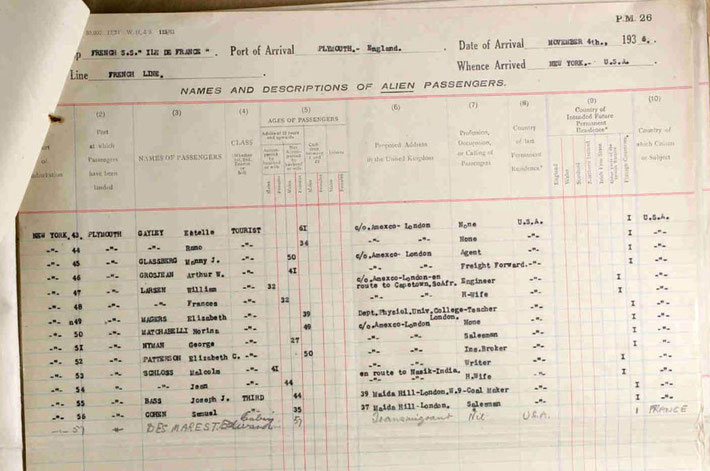 P.M. 26
FRENCH S.S." ILE DE FRANCE". Port of Arrival PLYMOUTH.- England. Date of Arrival NOVEMBER 4th., 193
Line FRENCH LINE. Whence Arrived NEW YORK.- U.S.A.
NAMES AND DESCRIPTIONS OF ALIEN PASSENGERS.
(2) (3) (4) (5) (6) (7) (8) (9) (10)
Port at which Passengers have been landed
NAMES OF PASSENGERS
CLASS
AGES OF PASSENGERS
Adults of 12 years and upwards
Infants
Males Females Males Females Males Females Males Females
Proposed Address in the United Kingdom
Profession, Occupation, or Calling of Passengers
Country of last Permanent Residence*
Country of Intended Future Permanent Residence*
England Wales Scotland Foreign Countries
Country of which Citizen or Subject
NEW YORK. 43. PLYMOUTH GAYLEY Estelle TOURIST 61 c/o.Amexco-London None U.S.A. 1 U.S.A.
-"- 44 -"- -"- -"- 34 -"- None -"- 1 -"-
-"- 45 -"- GLASSBERG Manny J. -"- 50 c/o.Amexco- London Agent -"- 1 -"-
-"- 46 -"- GROSJEAN Arthur W. -"- 41 -"- Freight Forward.-"- 1 -"-
-"- 47 -"- LARSEN William -"- 32 c/o.Amexco-London-en route to Capetown.SoAfr. Engineer -"- 1 -"-
-"- 48 -"- -"- Frances -"- 32 -"- H-Wife -"- 1 -"-
-"- 49 -"- MAGERS Elizabeth -"- 39 Dept.Physiol.Univ.College-London. Teacher -"- 1 -"-
-"- 50 -"- MATCHABELLI Norina -"- 49 c/o.Amexco-London None -"- 1 -"-
-"- 51 -"- NYMAN George -"- 27 -"- Salesman -"- 1 -"-
-"- 52 -"- PATTERSON Elizabeth C. -"- 50 -"- Ins.Broker -"- 1 -"-
-"- 53 -"- SCHLOSS Malcolm -"- 41 en route to Nasik-India. Writer -"- 1 -"-
-"- 54 -"- -"- Jean -"- 44 -"- H.Wife -"- 1 -"-
-"- 55 -"- BASS Joseph J. THIRD 44 39 Maida Hill-London.W.9- Maker -"- 1 -"-
-"- 56 -"- COHEN Samuel -"- 35 37 Maida Hill-London. Salesman -"- 1 -"-
57 DES MAREST. Edward Cabin 51 Transmigrant Nil USA 1 FRANCE